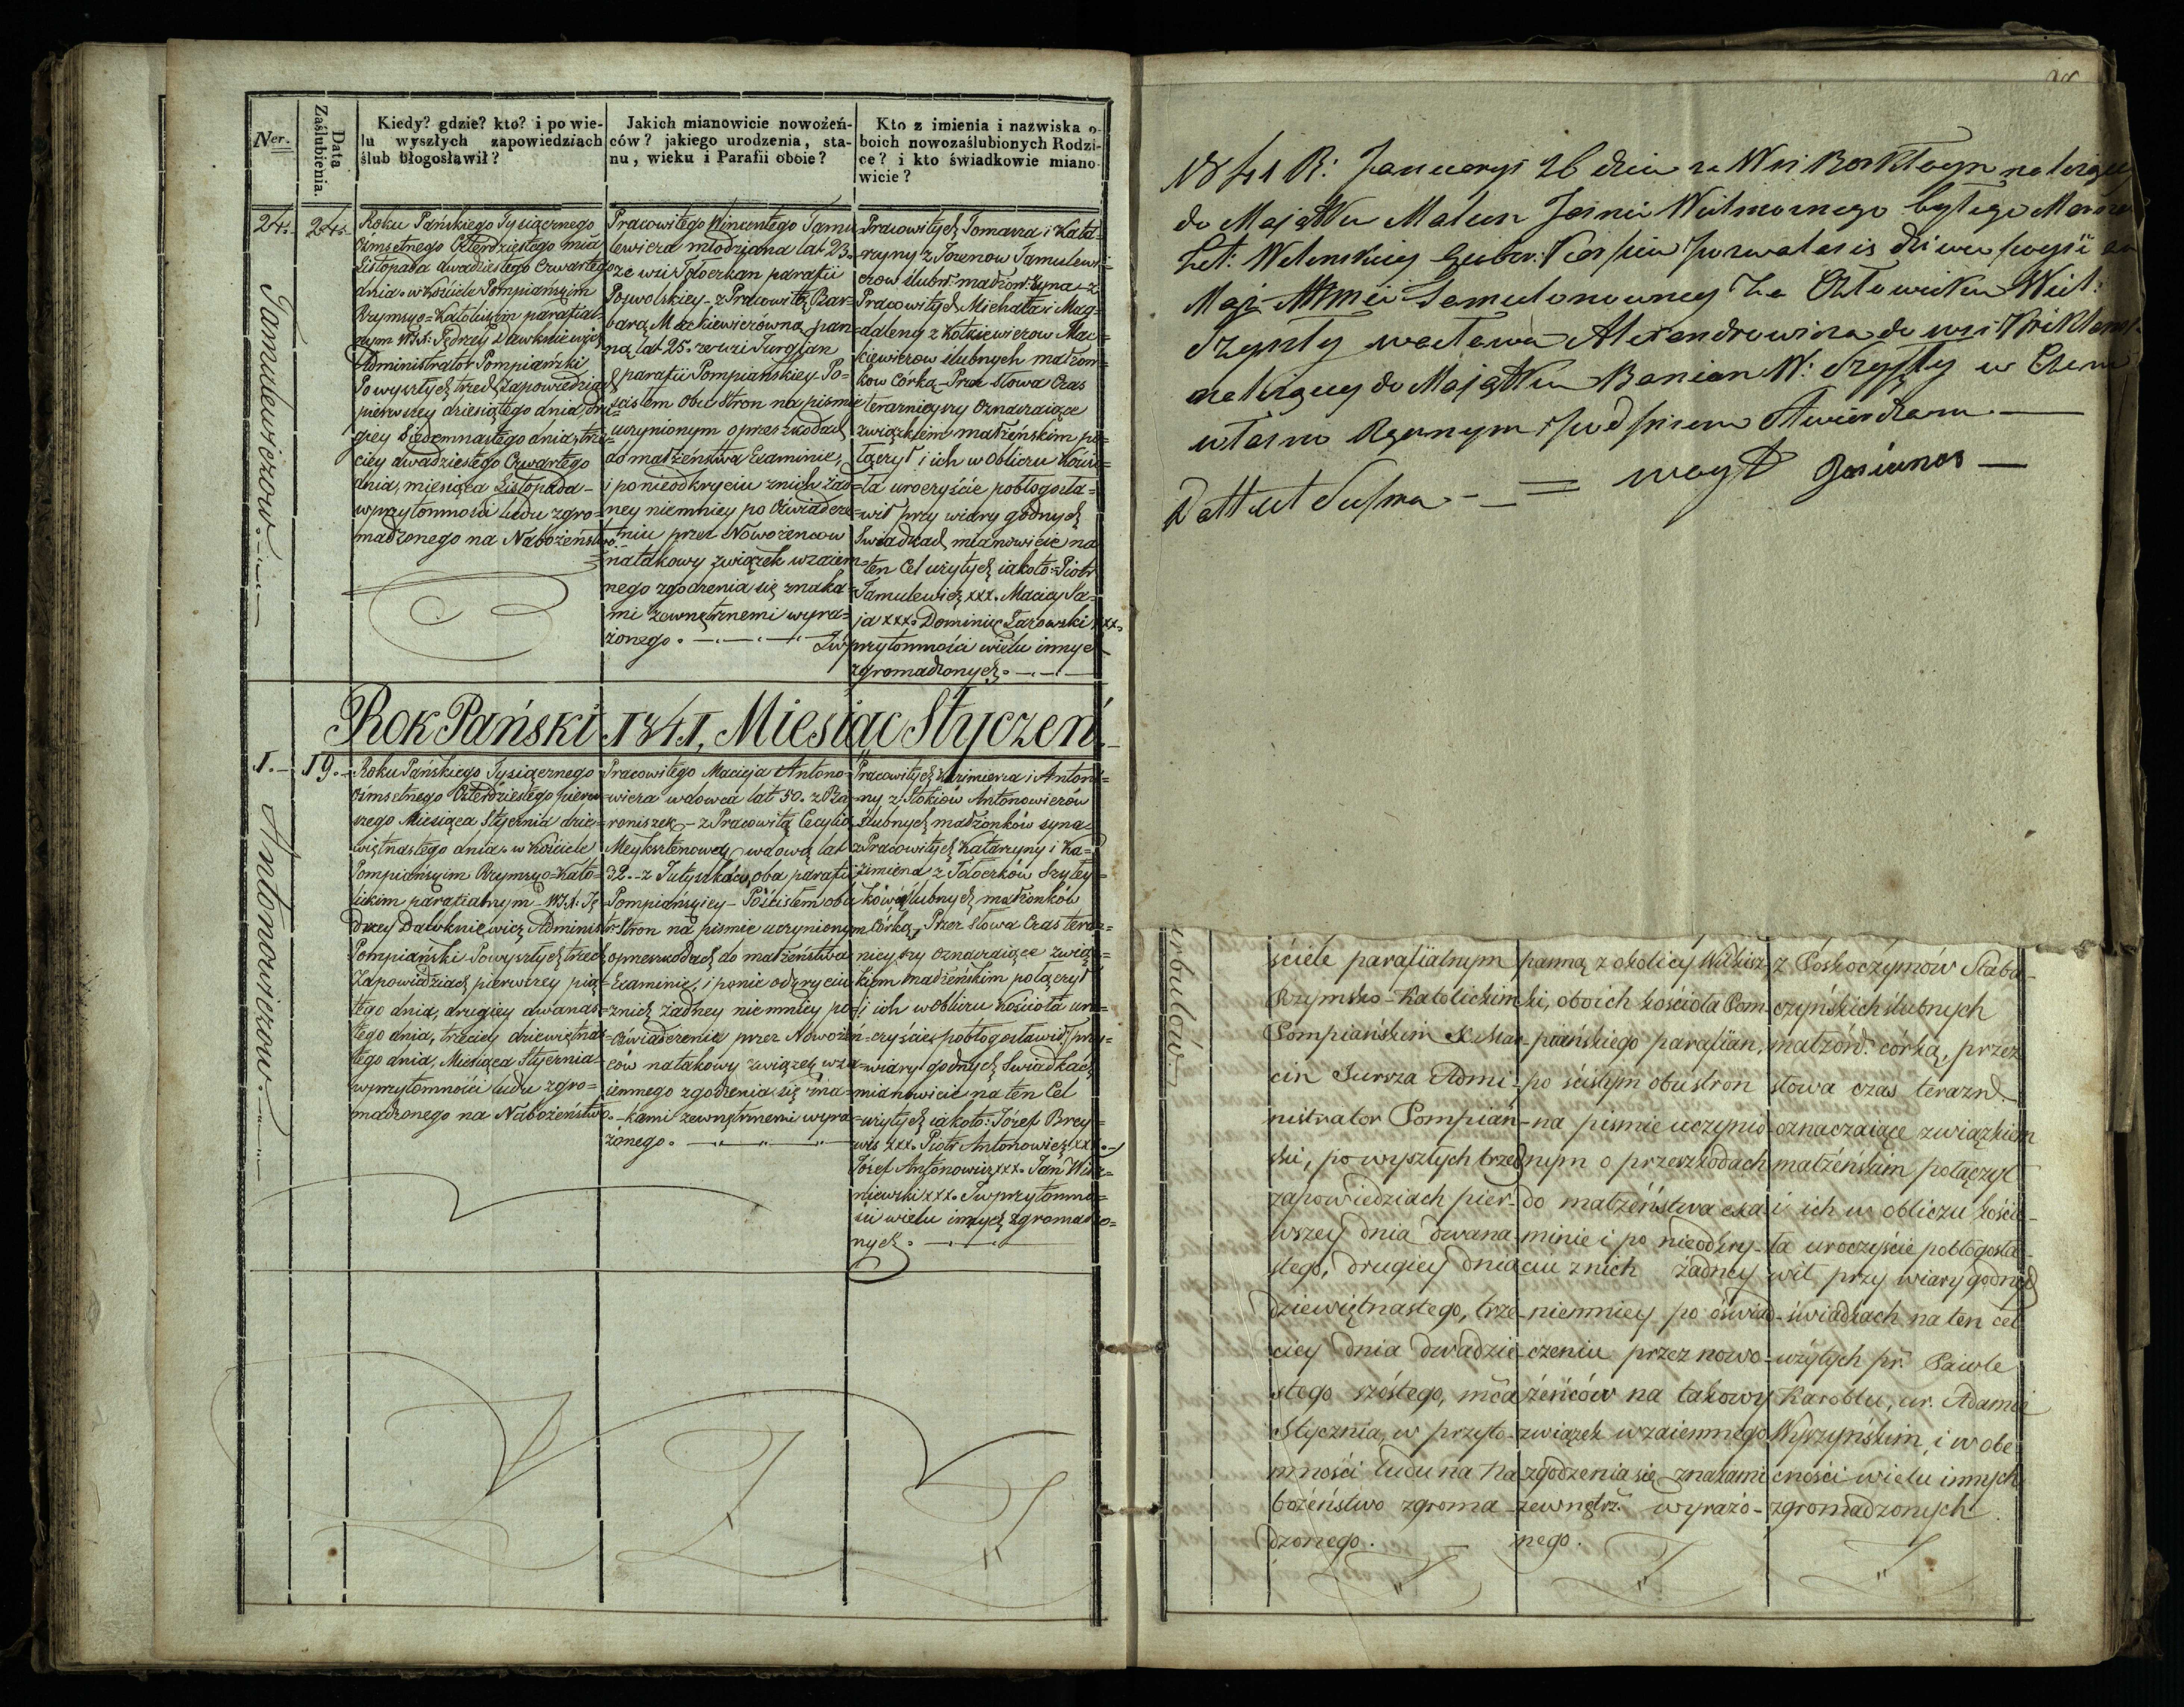 Ner.
Data Zaślubienia.
Kiedy? gdzie? kto? i po wie-
lu wyszłych zapowiedziach
ślub błogosławił?
Jakich mianowicie nowożeń-
ców? jakiego urodzenia, sta-
nu, wieku i Parafii oboie?
Kto z imienia i nazwiska o-
boich nowozaślubionych Rodzi-
ce? i kto świadkowie miano-
wicie?
24.
24.
Tamulewiczow.
Roku Pańskiego Tysiącznego
Ośmsetnego Czterdziestego mia
Listopada dwadziestego Czwartego
dnia. w Kościele Pompiańskim
Rzymsko=Katolickim parafial=
nym WJX: Jędrzey Dawkniewicz
Administrator Pompiański
Po wyszłych trzech Zapowiedziach
pierwszey dziesiątego dnia, dru=
giey Siedemnastego dnia, trze=
ciey dwadziestego Czwartego
dnia, miesiąca Listopada-
w przytomności ludu zgro=
madzonego na Nabożeństwo.
Pracowitego Wincentego Tamu
lewicza młodziana lat 23.
ze wsi Tołoczkan parafii
Poswolskiey - z Pracowitą Bar=
barą Mackiewiczówną pan=
ną lat 25. ze wsi Turgjan
parafii Pompiańskiey Po=
ścisłem Obu Stron na pismie
uczynionym o przeszkodach
do małżeństwa Examinie,
i po nieodkryciu znich żad=
ney niemniey po Oświadcze=
niu przez Nowożencow
na takowy związek wzaiem=
nego zgodzenia się znaka=
mi zewnętrznemi wyra=
żonego.
Pracowitych Tomasza i Kata=
rzyny z Jozenow Tamulewi=
czow slubn: małżon: Syna - z
Pracowitych Michała i Mag=
daleny z Kotkiewiczow Mac=
kiewiczow slubnych małżon=
kow Córką - Prze Słowa Czas
teraznieyszy Oznaczaiące
związkiem małżeńskim po=
łączył i ich w Obliczu Kościo=
ła uroczyście pobłogosła=
wił przy wiary godnych
Swiadkach mianowicie na
ten Cel użytych iakoto: Piotr
Tamulewicz xxx. Maciey Sa=
ja xxx. Dominik Łazowski xxx.
I w przytomności wielu innych
zgromadzonych.
Rok Pański 1841, Miesiąc Styczeń.
1.
19.
Antonowiczow.
Roku Pańskiego Tysiącznego
Ośmsetnego Czterdziestego pierw=
szego Miesiąca Stycznia dzie=
więtnastego dnia. w Kościele
Pompiańskim Rzymsko=Kato=
lickim parafialnym - WJX: Ję
drzey Dawkniewicz Administr:
Pompiański Po wyszłych trzech
Zapowiedziach pierwszey pią=
tego dnia, drugiey dwanas=
tego dnia, trzeciey dziewiętnas=
tego dnia, Miesiąca Stycznia
w przytomności ludu zgro=
madzonego na Nabożeństwo.
Pracowitego Macieja Antono=
wicza wdowca lat 50. z Ba=
roniszek - z Pracowitą Cecylią
Meyksztenową wdową lat
32. - z Jutyszków, oba parafii
Pompiańskiey - Po ścisłem obu
Stron na pismie uczynionym
o przeszkodach do małżeństwa
Examinie, i po nie odkryciu
znich żadney niemniey po
Oświadczenie przez Nowożeń=
ców na takowy związek wza=
iemnego zgodzenia się zna=
kami zewnętrznemi wyra=
żonego.
Pracowitych Kazimierza i Antoni=
ny z Stokiów Antonowiczów
slubnych małżonków syna -
z Pracowitych Katarzyny i Ka=
zimierza z Tołoczków Szyley=
ków slubnych małżonków
Córką, Przez Słowa Czas teraz=
nieyszy Oznaczaiące związ=
kiem małżeńskim połączył
i ich w Obliczu Kościoła uro=
czyście pobłogosławił, przy
wiary godnych Swiadkach
mianowicie na ten Cel
użytych iakoto: Józef Brey=
wis xxx. Piotr Antonowicz xxx.
Józef Antonowicz xxx. Jan Wisz=
niewski xxx. I w przytomno=
ści wielu innych zgromadzo=
nych.
1841 R: Januaryi 26 dnia
do Majątku
własno Ręcznym podpisem stwierdzam
Datt ut Supra - = woyt
ściele parafiialnym
Rzymsko-Katolickim
Pompiańskim X. Mar-
cin Jursza Admi-
nistrator Pompiań-
ski, po wyszłych trzech
zapowiedziach pier-
wszey dnia dwana-
stego, drugiey dnia
dziewiętnastego, trze-
ciey dnia dwadzie-
stego szóstego, mca
Stycznia, w przyto-
mności ludu na na
bożeństwo zgroma-
dzonego.
panną z okolicy
ki, oboich kościoła Pom-
piańskiego parafiian,
po ścisłym obu stron
na pismie uczynio-
nym o przeszkodach
do małżeństwa exa-
minie i po nieodkry-
ciu znich żadney
niemniey po oświad-
czeniu przez nowo-
żeńców na takowy
związek wzaiemnego
zgodzenia się znakami
zewnętrz. wyrażo-
nego.
czyńskich ślubnych
małżon. córką, przez
słowa czas terazn.
oznaczaiące związkiem
małżeńskim połączył
i ich w obliczu kościo-
ła uroczyście pobłogosła-
wił przy wiary godnych
świadkach na ten cel
użytych pr. Pawle
Karoblu, ur. Adamie
Wyszyńskim, i w obe-
cności wielu innych
zgromadzonych